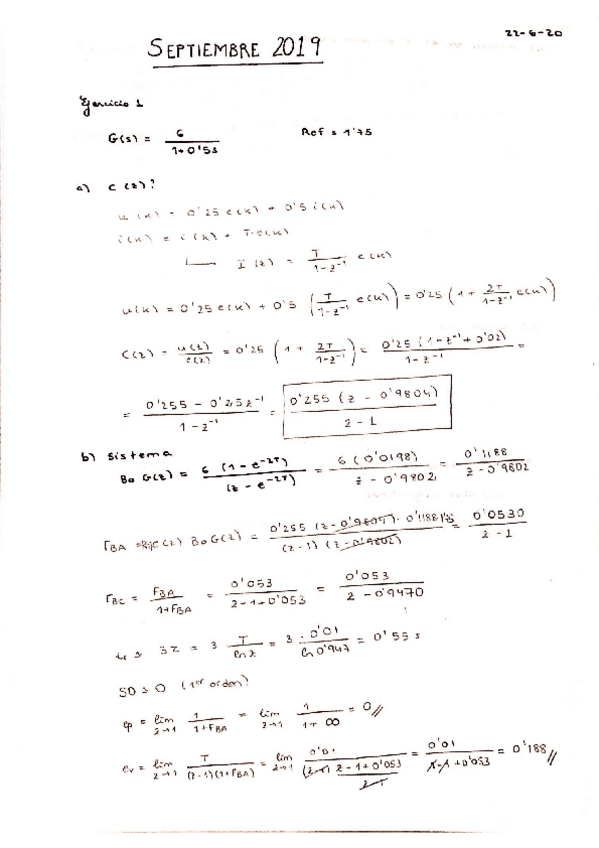 22-6-20
SEPTIEMBRE 2019
Ejercicio 1
G(s) = 6 / (1+0'5s)    Ref = 1'75
a) C(z)?
u(k) = 0'25 e(k) + 0'5 i(k)
i(k) = i(k) + T·e(k)
I(z) = T/(1-z⁻¹) e(k)
u(k) = 0'25 e(k) + 0'5 (T/(1-z⁻¹) e(k)) = 0'25 (1 + 2T/(1-z⁻¹) e(k))
C(z) = u(z)/e(z) = 0'25 (1 + 2T/(1-z⁻¹)) = 0'25 (1-z⁻¹+0'02)/(1-z⁻¹) =
= (0'255 - 0'25z⁻¹)/(1-z⁻¹) = 0'255 (z - 0'9804)/(z-1)
b) Sistema
B₀G(z) = 6 (1-e⁻²ᵀ)/(z-e⁻²ᵀ) = 6 (0'0198)/(z-0'9802) = 0'1188/(z-0'9802)
C(z) B₀G(z) = 0'255 (z-0'9804)· 0'1188 /((z-1)(z-0'9802)) = 0'0530/(z-1)
F_BC = F_BA/(1+F_BA) = 0'053/(z-1+0'053) = 0'053/(z-0'9470)
= 3 T/ln z = 3 · 0'01/ln 0'947 = 0'55 s
SO = 0 (1er orden)
ep = lim z→1 1/(1+F_BA) = lim z→1 1/(1+∞) = 0//
ev = lim z→1 T/((z-1)(1+F_BA)) = lim z→1 0'01/((z-1) (z-1+0'053)/(z-1)) = 0'01/(1-1+0'053) = 0'188//